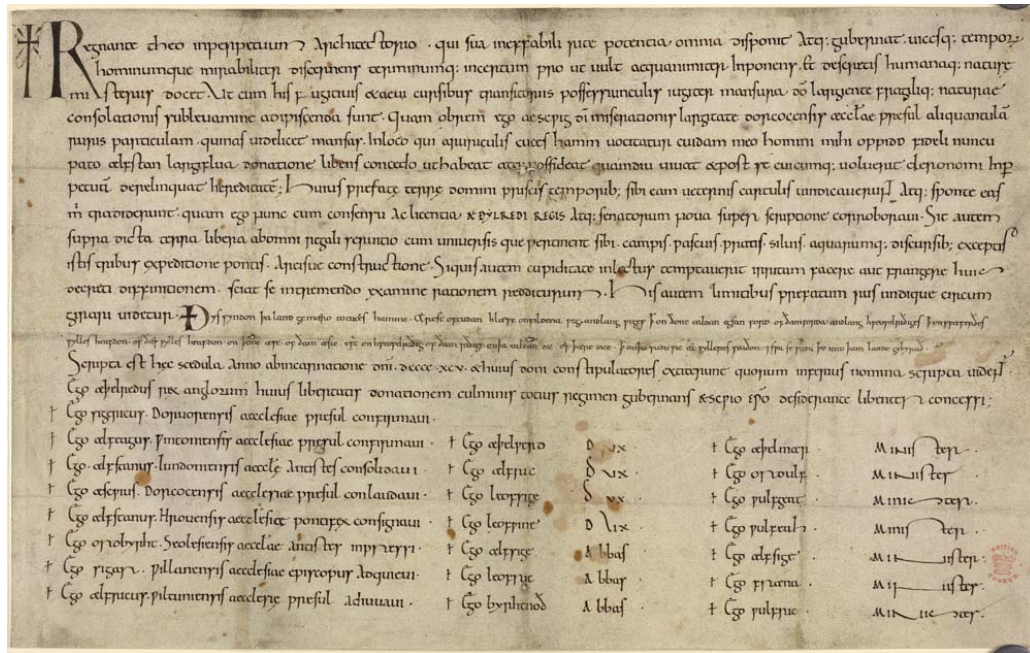 Regnante theo inperpetuum ⁊ Architectorio · qui sua ineffabili rite potencia omnia disponit Atq; gubernat · uicesq; tempor
hominumque mirabiliter discernens terminumq; incertum prout uult aequanimiter Inponens · Et de secretis humanaq; nature
misteriis docet · Ut cum his fugitiuis cursibus transitoriis possessiunculis iugiter mansura do largiente fragiliq; naturae
consolationis subleuamine adipiscenda sunt · Quam obrem ego aescwig di miserationis largitate dorcocensis aecclae presul aliquantulã
ruris particulam · quinas uidelicet mansas · Inloco qui a ruriculis cuces hamm uocitatur cuidam meo homini mihi oppido fideli nuncu
pato ælfstan largiflua donatione libens concedo ut habeat atq; possideat quamdiu uiuat & post se cuicumq; uoluerit cleronomi Inp
petuũ derelinquat hereditatẽ; Huius prefate terrę domini priscis temporib; sibi eam ueternis cartulis uindicauerunt Atq; sponte eas
m̃ tradiderunt · quam ego nunc cum consensu Ac licentia ÆÞYLREDI REGIS Atq; senatorum noua super scriptione corroboraui · Sit autem
supra dicta terra libera ab omni regali seruitio cum uniuersis que pertinent sibi · campis · pascuis · pratis · siluis · aquarumq; discursib; exceptis
istis tribus expeditione pontis · Arcisue constructione · Siquis autem cupiditate inlectus temptauerit irritum facere aut frangere huius
decreti diffinitionem · sciat se in tremendo examine rationem redditurum · His autem limitibus prefatum rus undique circum
girari uidetur · ✝ Ðis syndon þa land gemæro to cuces hamme ·
Scripta est hęc scedula · Anno ab incarnatione dni · dcccc · xcv · & huius doni constipulatores exstiterunt quorum inferius nomina scripta uident
Ego æþelredus rex anglorum huius libertatis donationem culminis totius regimen gubernans æscwio epõ desiderante libenter concessi;
† Ego sigericus · Doruorensis aecclesiae presul confirmaui ·
† Ego ælfeagus · Wintoniensis aecclesiae presul confirmaui · † Ego æþelweard Dux · † Ego æþelmær minister ·
† Ego ælfstanus · lundoniensis aecclę Antistes consolidaui · † Ego ælfric Dux · † Ego ordulf minister
† Ego æscwius · Dorcocensis aecclesiae presul conlaudaui · † Ego leofsige Dux · † Ego wulfgeat minister ·
† Ego ælfstanus · Hrouensis aecclesiae pontifex consignaui · † Ego leofwine Dux · † Ego wulfeah minister ·
† Ego ordbyrht · Seolesiensis aecclae Antistes inpressi · † Ego ælfsige Abbas · † Ego ælfsige · minister ·
† Ego sigar · Willanensis aecclesiae episcopus Adquieui · † Ego leofric Abbas · † Ego fræna · minister ·
† Ego ælfricus · wiltuniensis aecclesię presul Adiuuaui · † Ego byrhtnoð Abbas · † Ego wulfric · minister ·